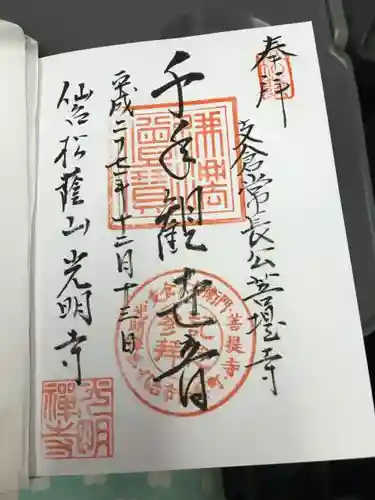 奉拝
支倉常長公菩提寺
千手観世音
平成二十七年十二月十三日
仙台松蔭山光明寺
佛法僧寳
光明禅寺